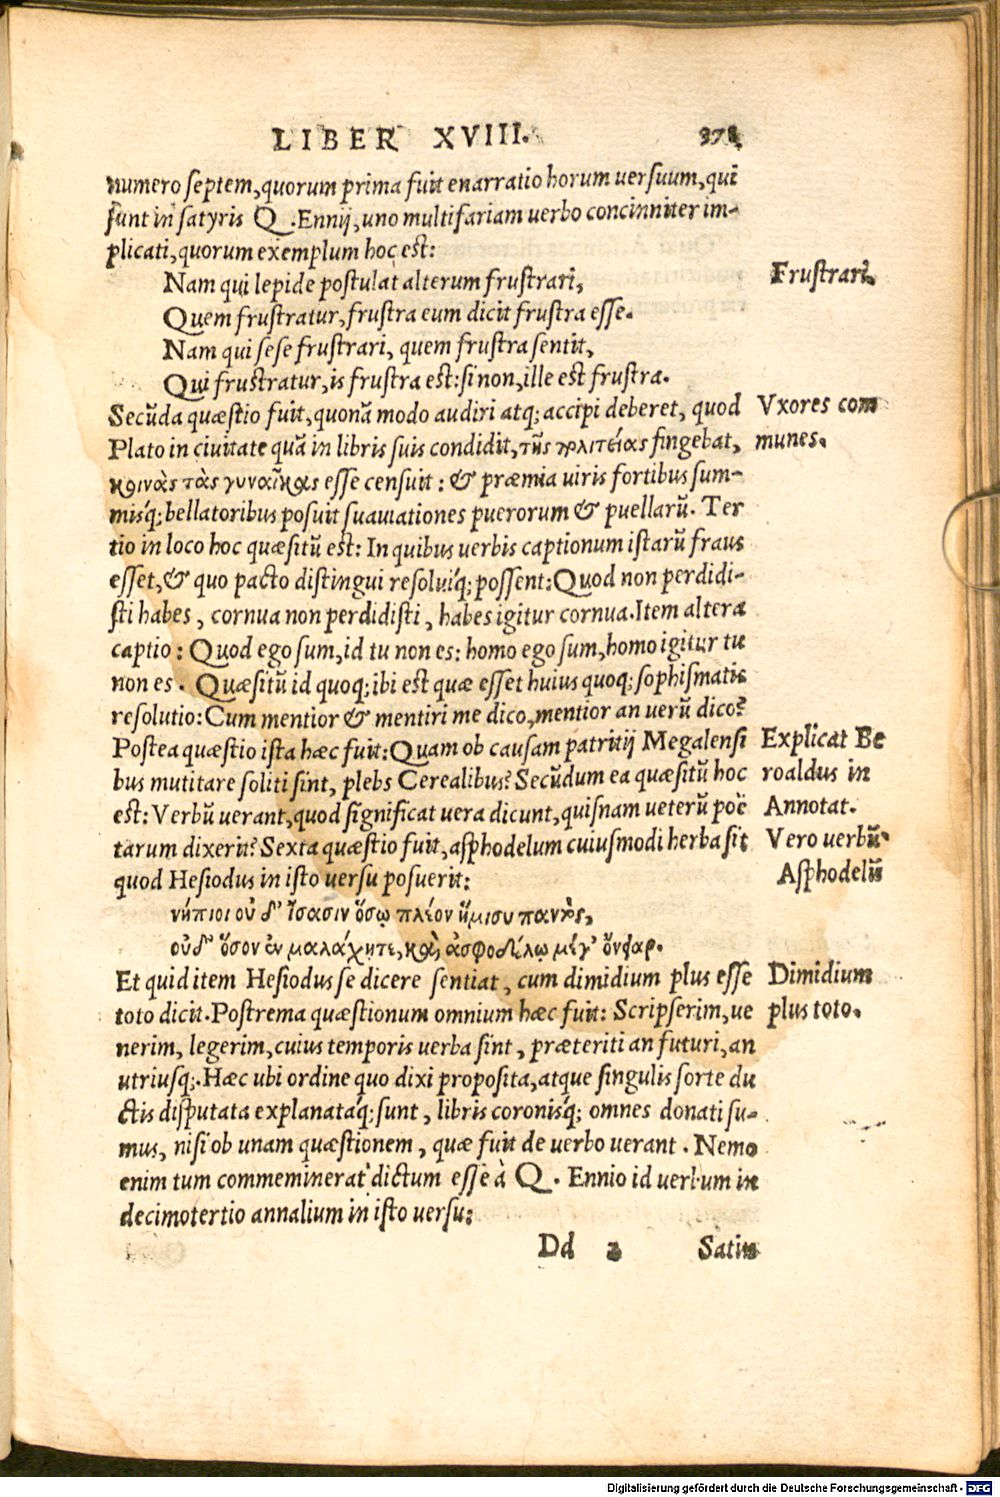 LIBER XVIII. 378
numero septem, quorum prima fuit enarratio horum uersuum, qui
sunt in satyris Q. Ennij, uno multifariam uerbo concinniter im-
plicati, quorum exemplum hoc est:
Nam qui lepide postulat alterum frustrari, Frustrari.
Quem frustratur, frustra eum dicit frustra esse.
Nam qui sese frustrari, quem frustra sentit,
Qui frustratur, is frustra est: si non, ille est frustra.
Secūda quæstio fuit, quonā modo audiri atq; accipi deberet, quod Vxores com
Plato in ciuitate quā in libris suis condidit, τῆς πολιτείας fingebat, munes.
κοινὰς τὰς γυναῖκας esse censuit: & præmia uiris fortibus sum-
misq́; bellatoribus posuit suauiationes puerorum & puellarū. Ter
tio in loco hoc quæsitū est: In quibus uerbis captionum istarū fraus
esset, & quo pacto distingui resoluiq́; possent: Quod non perdidi-
sti habes, cornua non perdidisti, habes igitur cornua. Item altera
captio: Quod ego sum, id tu non es: homo ego sum, homo igitur tu
non es. Quæsitū id quoq; ibi est quæ esset huius quoq; sophismatis
resolutio: Cum mentior & mentiri me dico, mentior an uerū dico?
Postea quæstio ista hæc fuit: Quam ob causam patritij Megalensi Explicat Be
bus mutitare soliti sint, plebs Cerealibus? Secūdum ea quæsitū hoc roaldus in
est: Verbū uerant, quod significat uera dicunt, quisnam ueterū poë Annotat.
tarum dixerit? Sexta quæstio fuit, asphodelum cuiusmodi herba sit Vero uerbū.
quod Hesiodus in isto uersu posuerit: Asphodelū
νήπιοι οὐ δ' ἴσασιν ὅσῳ πλέον ἥμισυ παντὸς,
οὐδ' ὅσον ἐν μαλάχητε, καὶ ἀσφοδέλῳ μέγ' ὄνειαρ.
Et quid item Hesiodus se dicere sentiat, cum dimidium plus esse Dimidium
toto dicit. Postrema quæstionum omnium hæc fuit: Scripserim, ue plus toto.
nerim, legerim, cuius temporis uerba sint, præteriti an futuri, an
utriusq;. Hæc ubi ordine quo dixi proposita, atque singulis sorte du
ctis disputata explanataq́; sunt, libris coronisq́; omnes donati su-
mus, nisi ob unam quæstionem, quæ fuit de uerbo uerant. Nemo
enim tum commeminerat dictum esse à Q. Ennio id uerbum in
decimotertio annalium in isto uersu:
Dd 2 Satin
Digitalisierung gefördert durch die Deutsche Forschungsgemeinschaft - DFG